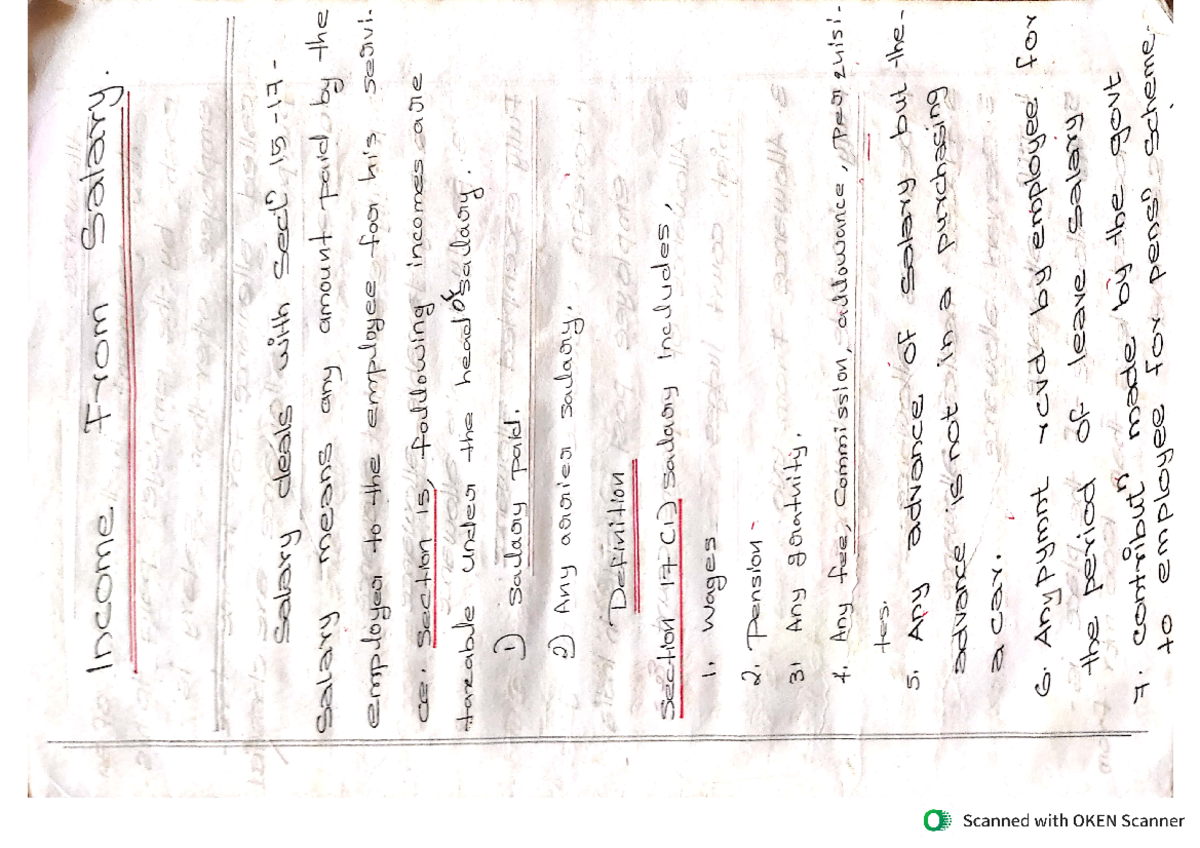 Income From Salary.
Salary deals with Secⁿ 15-17-
Salary means any amount paid by the
employer to the employee for his servi-
ce. Section 15, following incomes are
taxable under the head of salary.
1) Salary paid.
2) Any arries salary.
Definition
Section 17(1) salary includes,
1. Wages
2. Pension -
3. Any gratuity.
4. Any fee, Commission, allowance, perquisi-
tes.
5. Any advance of salary but the-
advance is not in a purchasing
a car.
6. Any pymnt rcvd by employee for
the period of leave salary
7. contributⁿ made by the govt
to employee for pensⁿ scheme.
Scanned with OKEN Scanner